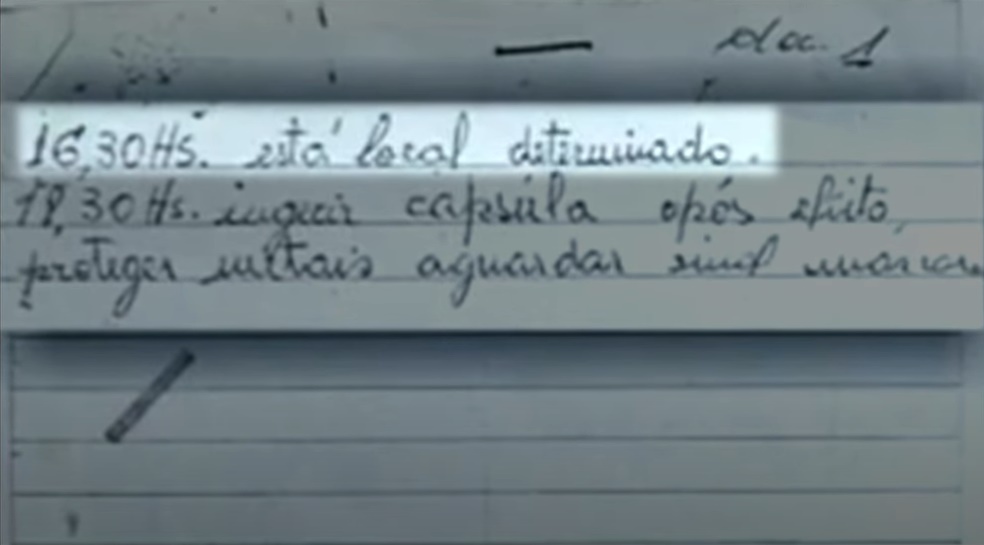 doc. 1
16,30 Hs. está local determinado.
18,30 Hs. ingerir capsúla após efeito,
proteger metais aguardar sinal máscara